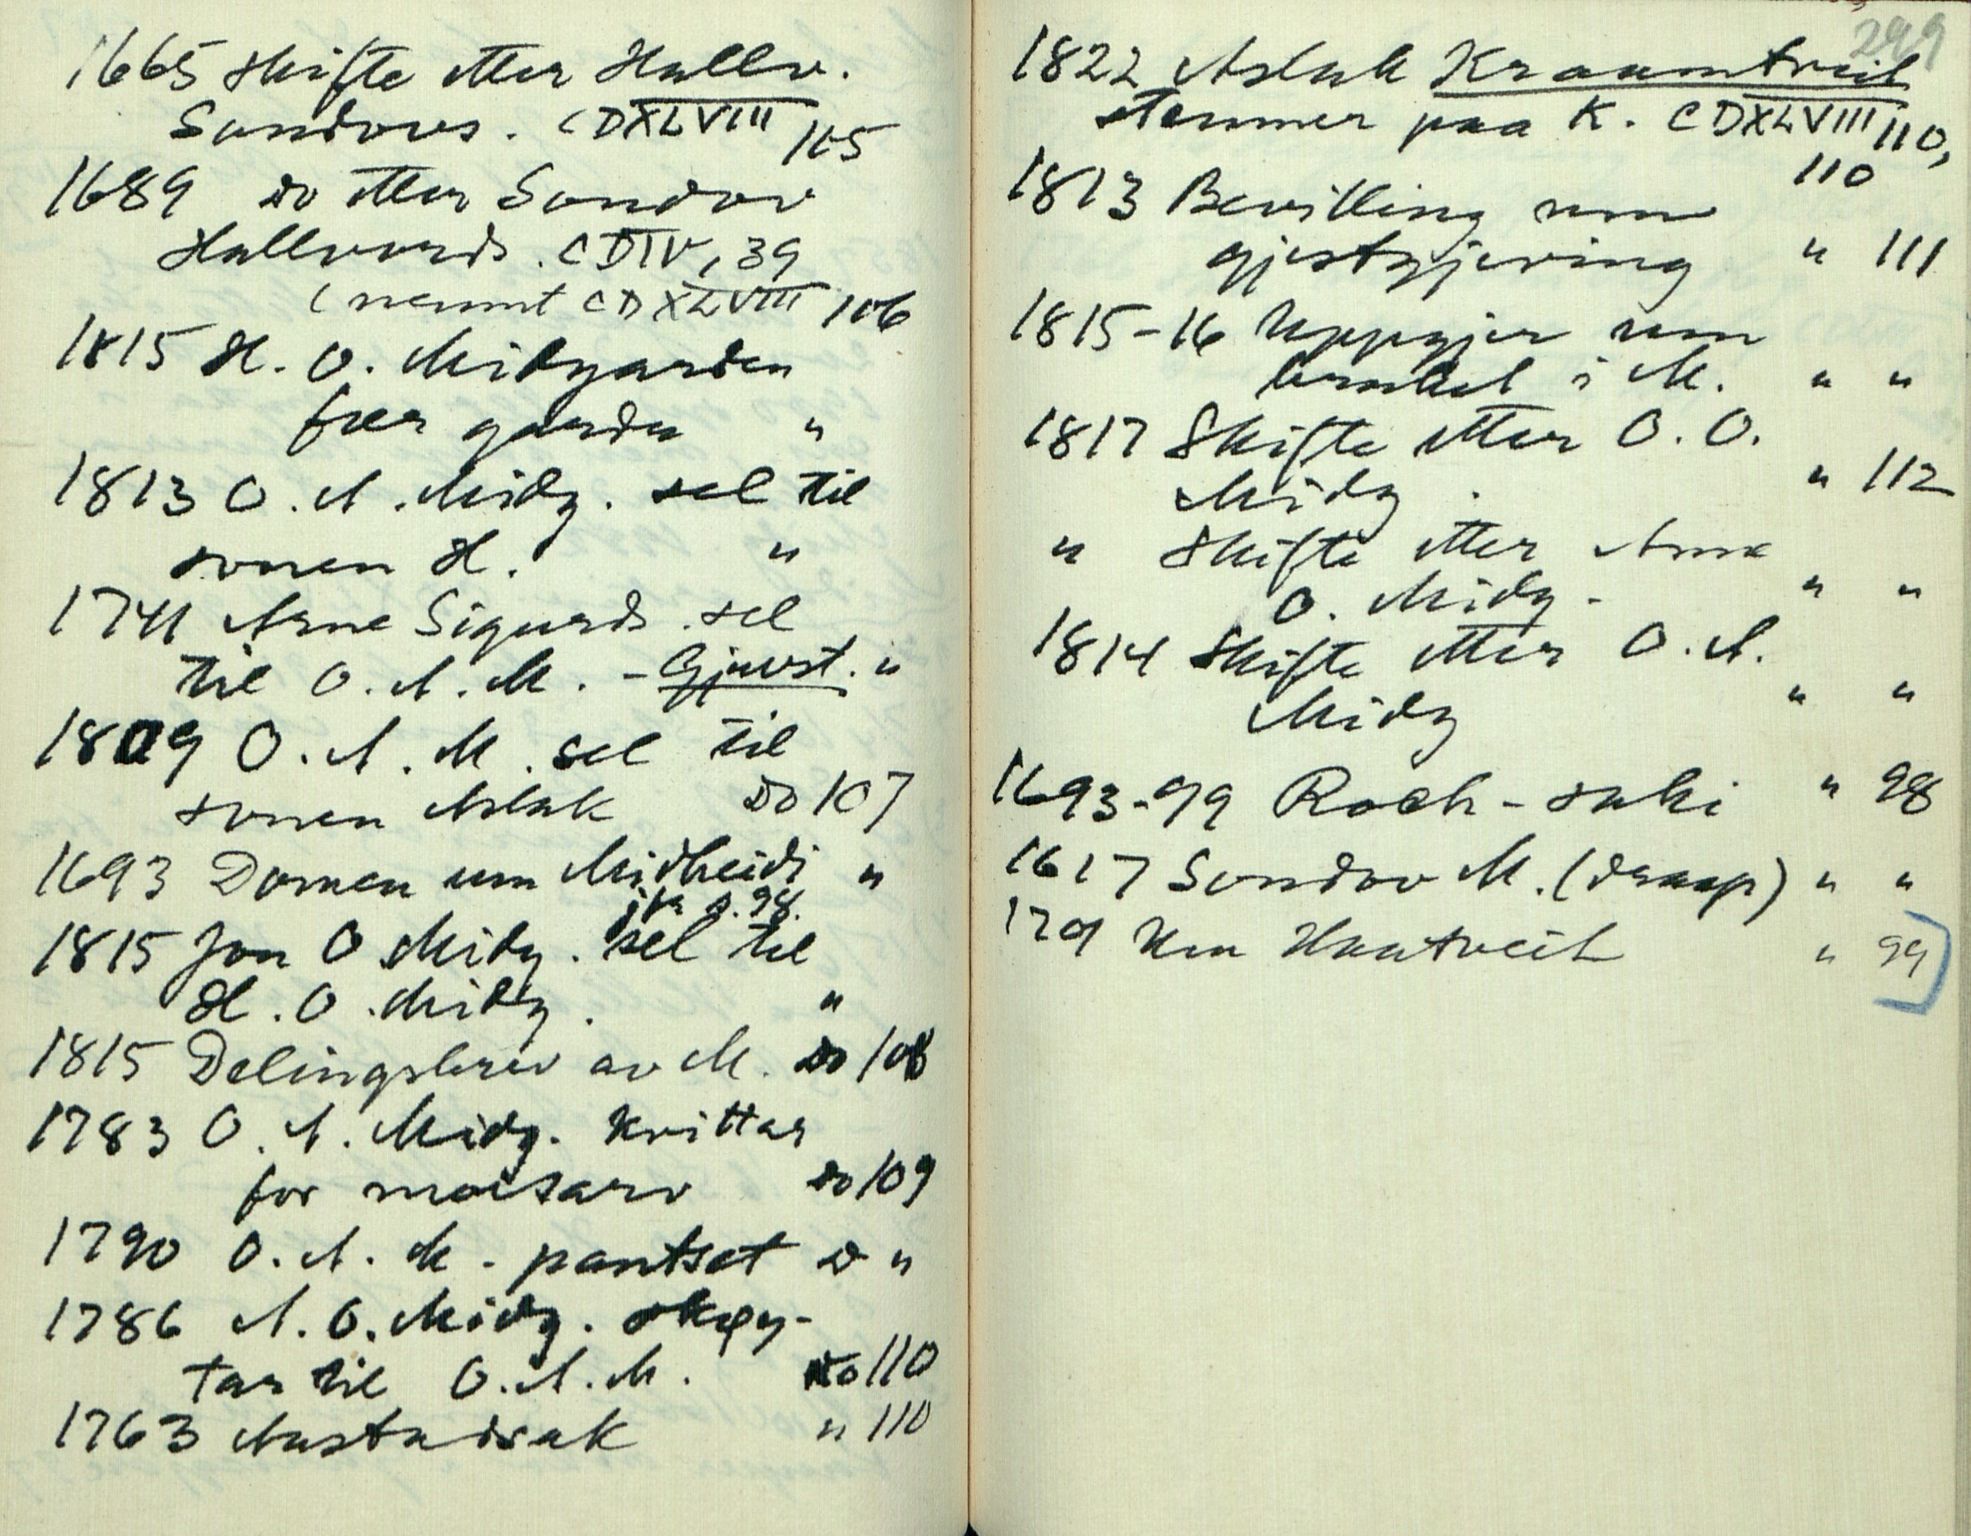 1665 Skifte etter Hallv.
Sondovs. CDXLVIII 105
1689 Do etter Sondov
Hallvords. CDIV, 39
(nemnt CDXLVIII 106
1815 H. O. Midgarden
fær garden "
1813 O. A. Midg. sel til
sonen H. "
1741 Arne Sigurds. sel
til O. A. M. - Gjuvst. "
1809 O. A. M. sel til
sonen Aslak Do 107
1693 Domen um Midheidi "
jfr s. 98.
1815 Jon O Midg. sel til
H. O. Midg. "
1815 Delingsbrev av M. Do 108
1783 O. A. Midg. kvittar
for morsarv Do 109
1790 O. A. M. pantset D "
1786 A. O. Midg. skøy-
tar til O. A. M. Do 110
1763 Austad " 110
299
1822 Aslak Kraamtveit
stemner paa K. CDXLVIII 110,
110
1813 Bevilling um
gjestgjeving " 111
1815-16 Uppgjer um
bruket i M. " "
1817 Skifte etter O. O.
Midg. " 112
" Skifte etter Arne
O. Midg. " "
1814 Skifte etter O. A.
Midg " "
1693-99 Roch-saki " 98
1617 Sondov M. (draap) " "
1701 Um Haatveit " 99